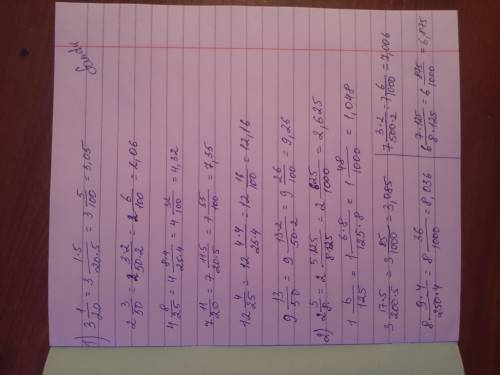 1) 3 1/20 = 3 1·5/20·5 = 3 5/100 = 3,05
2 3/50 = 2 3·2/50·2 = 2 6/100 = 2,06
4 8/25 = 4 8·4/25·4 = 4 32/100 = 4,32
7 11/20 = 7 11·5/20·5 = 7 55/100 = 7,55
12 4/25 = 12 4·4/25·4 = 12 16/100 = 12,16
9 13/50 = 9 13·2/50·2 = 9 26/100 = 9,26
2) 2 5/8 = 2 5·125/8·125 = 2 625/1000 = 2,625
1 6/125 = 1 6·8/125·8 = 1 48/1000 = 1,048
3 17·5/200·5 = 3 85/1000 = 3,085
7 3·2/500·2 = 7 6/1000 = 7,006
8 9·4/250·4 = 8 36/1000 = 8,036
6 7·125/8·125 = 6 875/1000 = 6,875